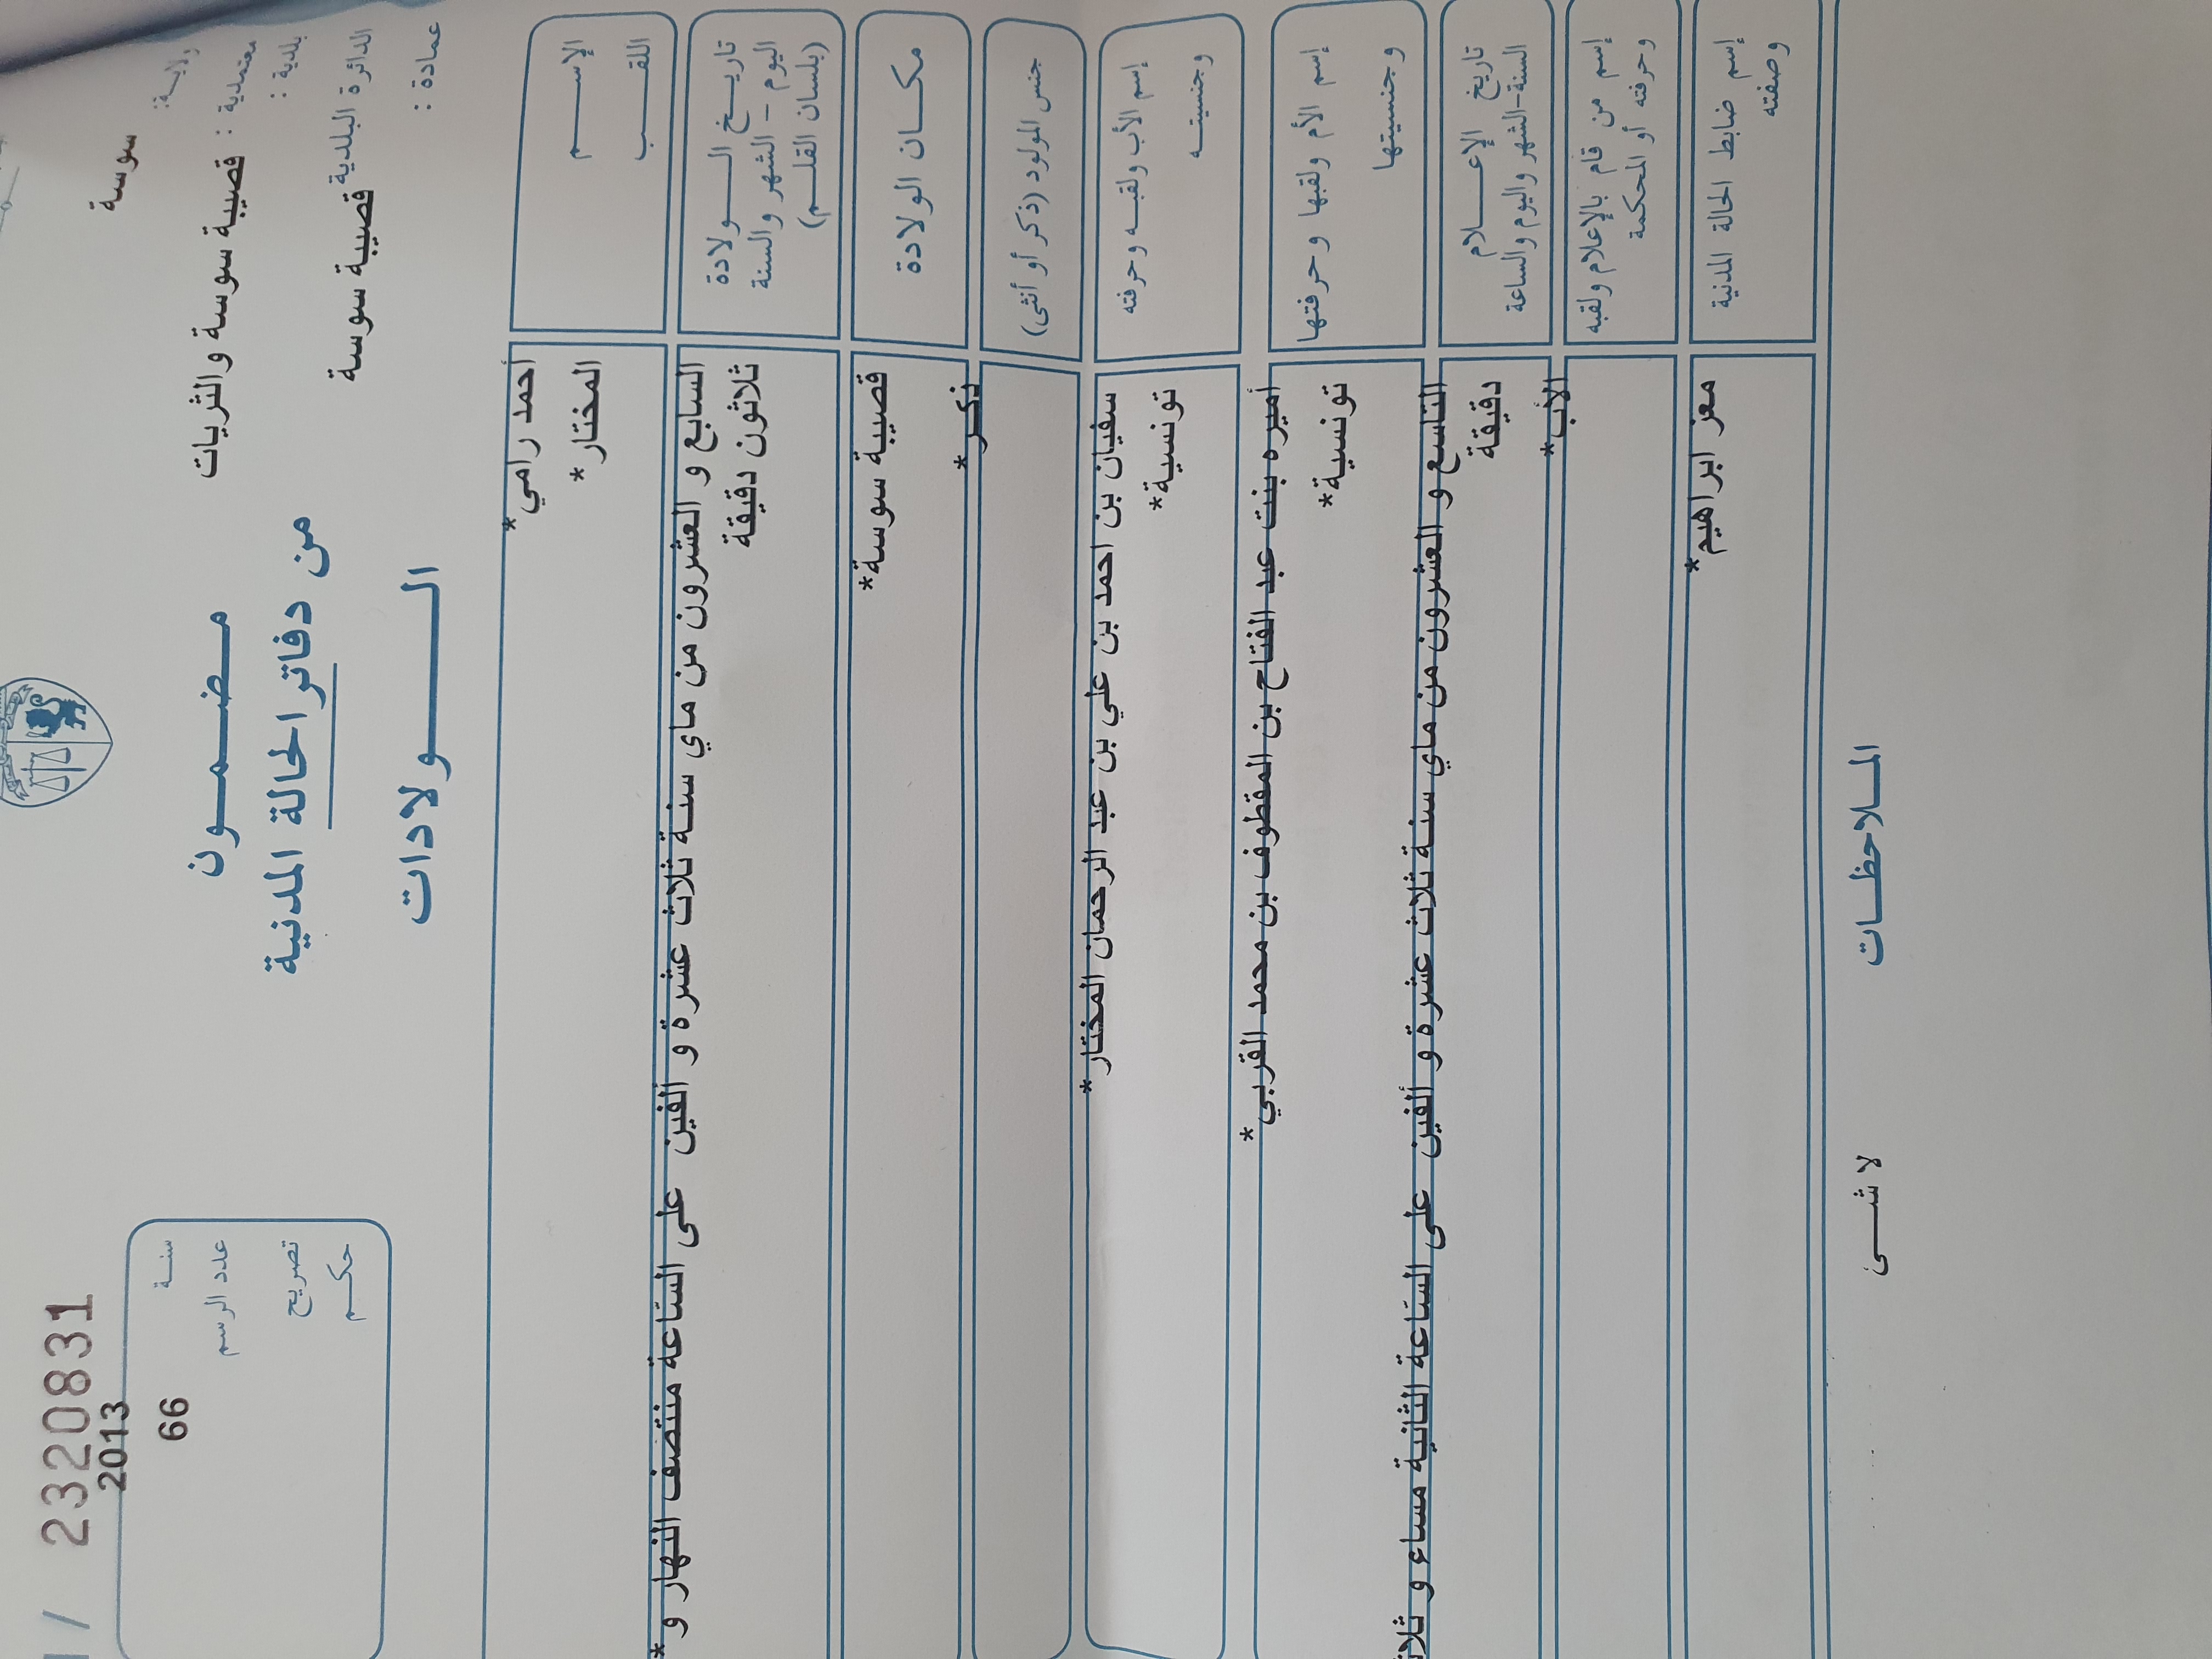 ولايـــة:
سوسة
معتمدية : قصيبة سوسة والثريات
بلدية :
الدائرة البلدية قصيبة سوسة
عمادة :
مـــضـــمـــون
من دفاتر الحالة المدنية
الـــــولادات
2320831
سنــة 2013
عدد الرسم 66
تصريح
حكــم
الإســـــم
اللقـــــب
أحمد رامي*
المختار*
تاريـــخ الـــــولادة
اليوم - الشهر والسنة
(بلسان القلـــم)
السابع و العشرون من ماي سنة ثلاث عشرة و ألفين على الساعة منتصف النهار و
ثلاثون دقيقة*
مكـــان الولادة
قصيبة سوسة*
جنس المولود (ذكر أو أنثى)
ذكر*
إسم الأب ولقبـه وحرفته
وجنسيتـــه
سفيان بن احمد بن علي بن عبد الرحمان المختار*
تونسية*
إسم الأم ولقبها وحرفتها
وجنسيتها
أميره بنت عبد الفتاح بن المقطوف بن محمد القربي*
تونسية*
تاريخ الإعــــلام
السنة-الشهر واليوم والساعة
التاسع و العشرون من ماي سنة ثلاث عشرة و ألفين على الساعة الثانية مساء و
دقيقة
إسم من قام بالإعلام ولقبه
وحرفته أو المحكمة
الأب*
إسم ضابط الحالة المدنية
وصفته
معز ابراهيم*
المــلاحظــات
لا شـــئ